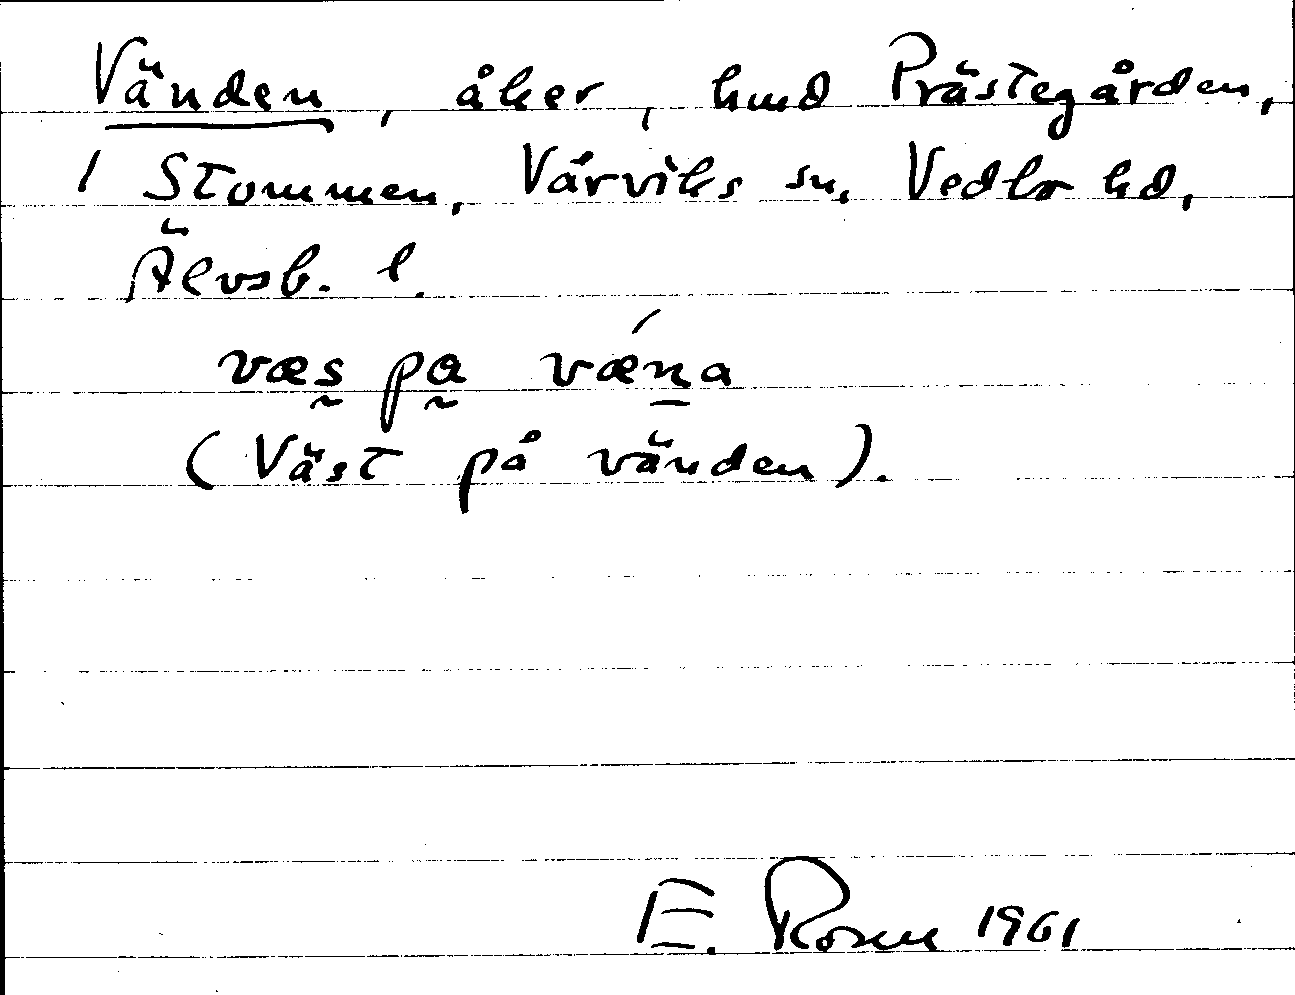 Vänden, åker, hmd Prästegården,
1 Stommen, Vårviks sn, Vedbo hd,
Älvsb. l.
væs pa vǽna
(Väst på vänden).
E. Rosen 1961